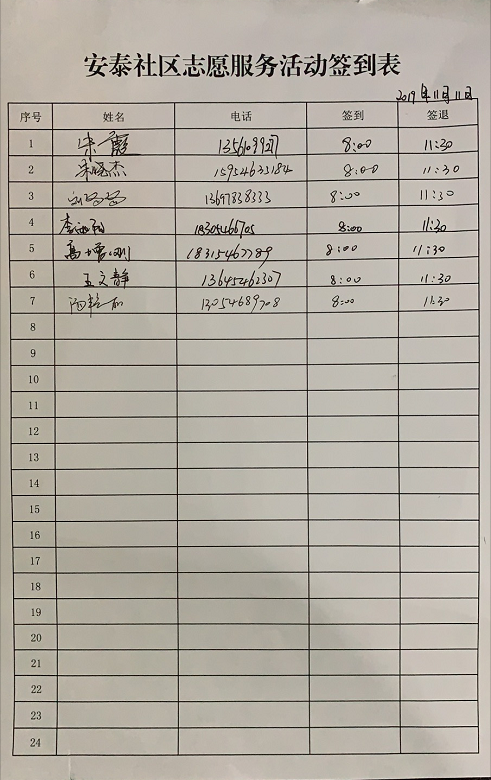 安泰社区志愿服务活动签到表
2019年11月11日
序号 姓名 电话 签到 签退
1 朱霞 8:00 11:30
2 杰 15954633184 8:00 11:30
3 13697838333 8:00 11:30
4 李 18305466705 8:00 11:30
5 高增刚 18315467789 8:00 11:30
6 王文静 13645462307 8:00 11:30
7 13054689708 8:00 11:30
8
9
10
11
12
13
14
15
16
17
18
19
20
21
22
23
24